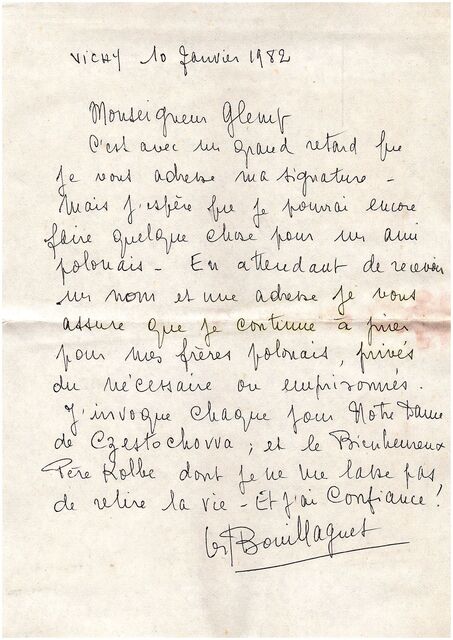 VICHY 10 Janvier 1982
Monseigneur Glemp
C'est avec un grand retard que
je vous adresse ma signature -
Mais j'espère que je pourrai encore
faire quelque chose pour un ami
polonais - En attendant de recevoir
un nom et une adresse je vous
assure que je continue à prier
pour mes frères polonais, privés
du nécessaire ou emprisonnés.
J'invoque chaque jour Notre Dame
de Czestochovva ; et le Bienheureux
Père Kolbe dont je ne me lasse pas
de relire la vie - Et j'ai Confiance !
Bouillaguet